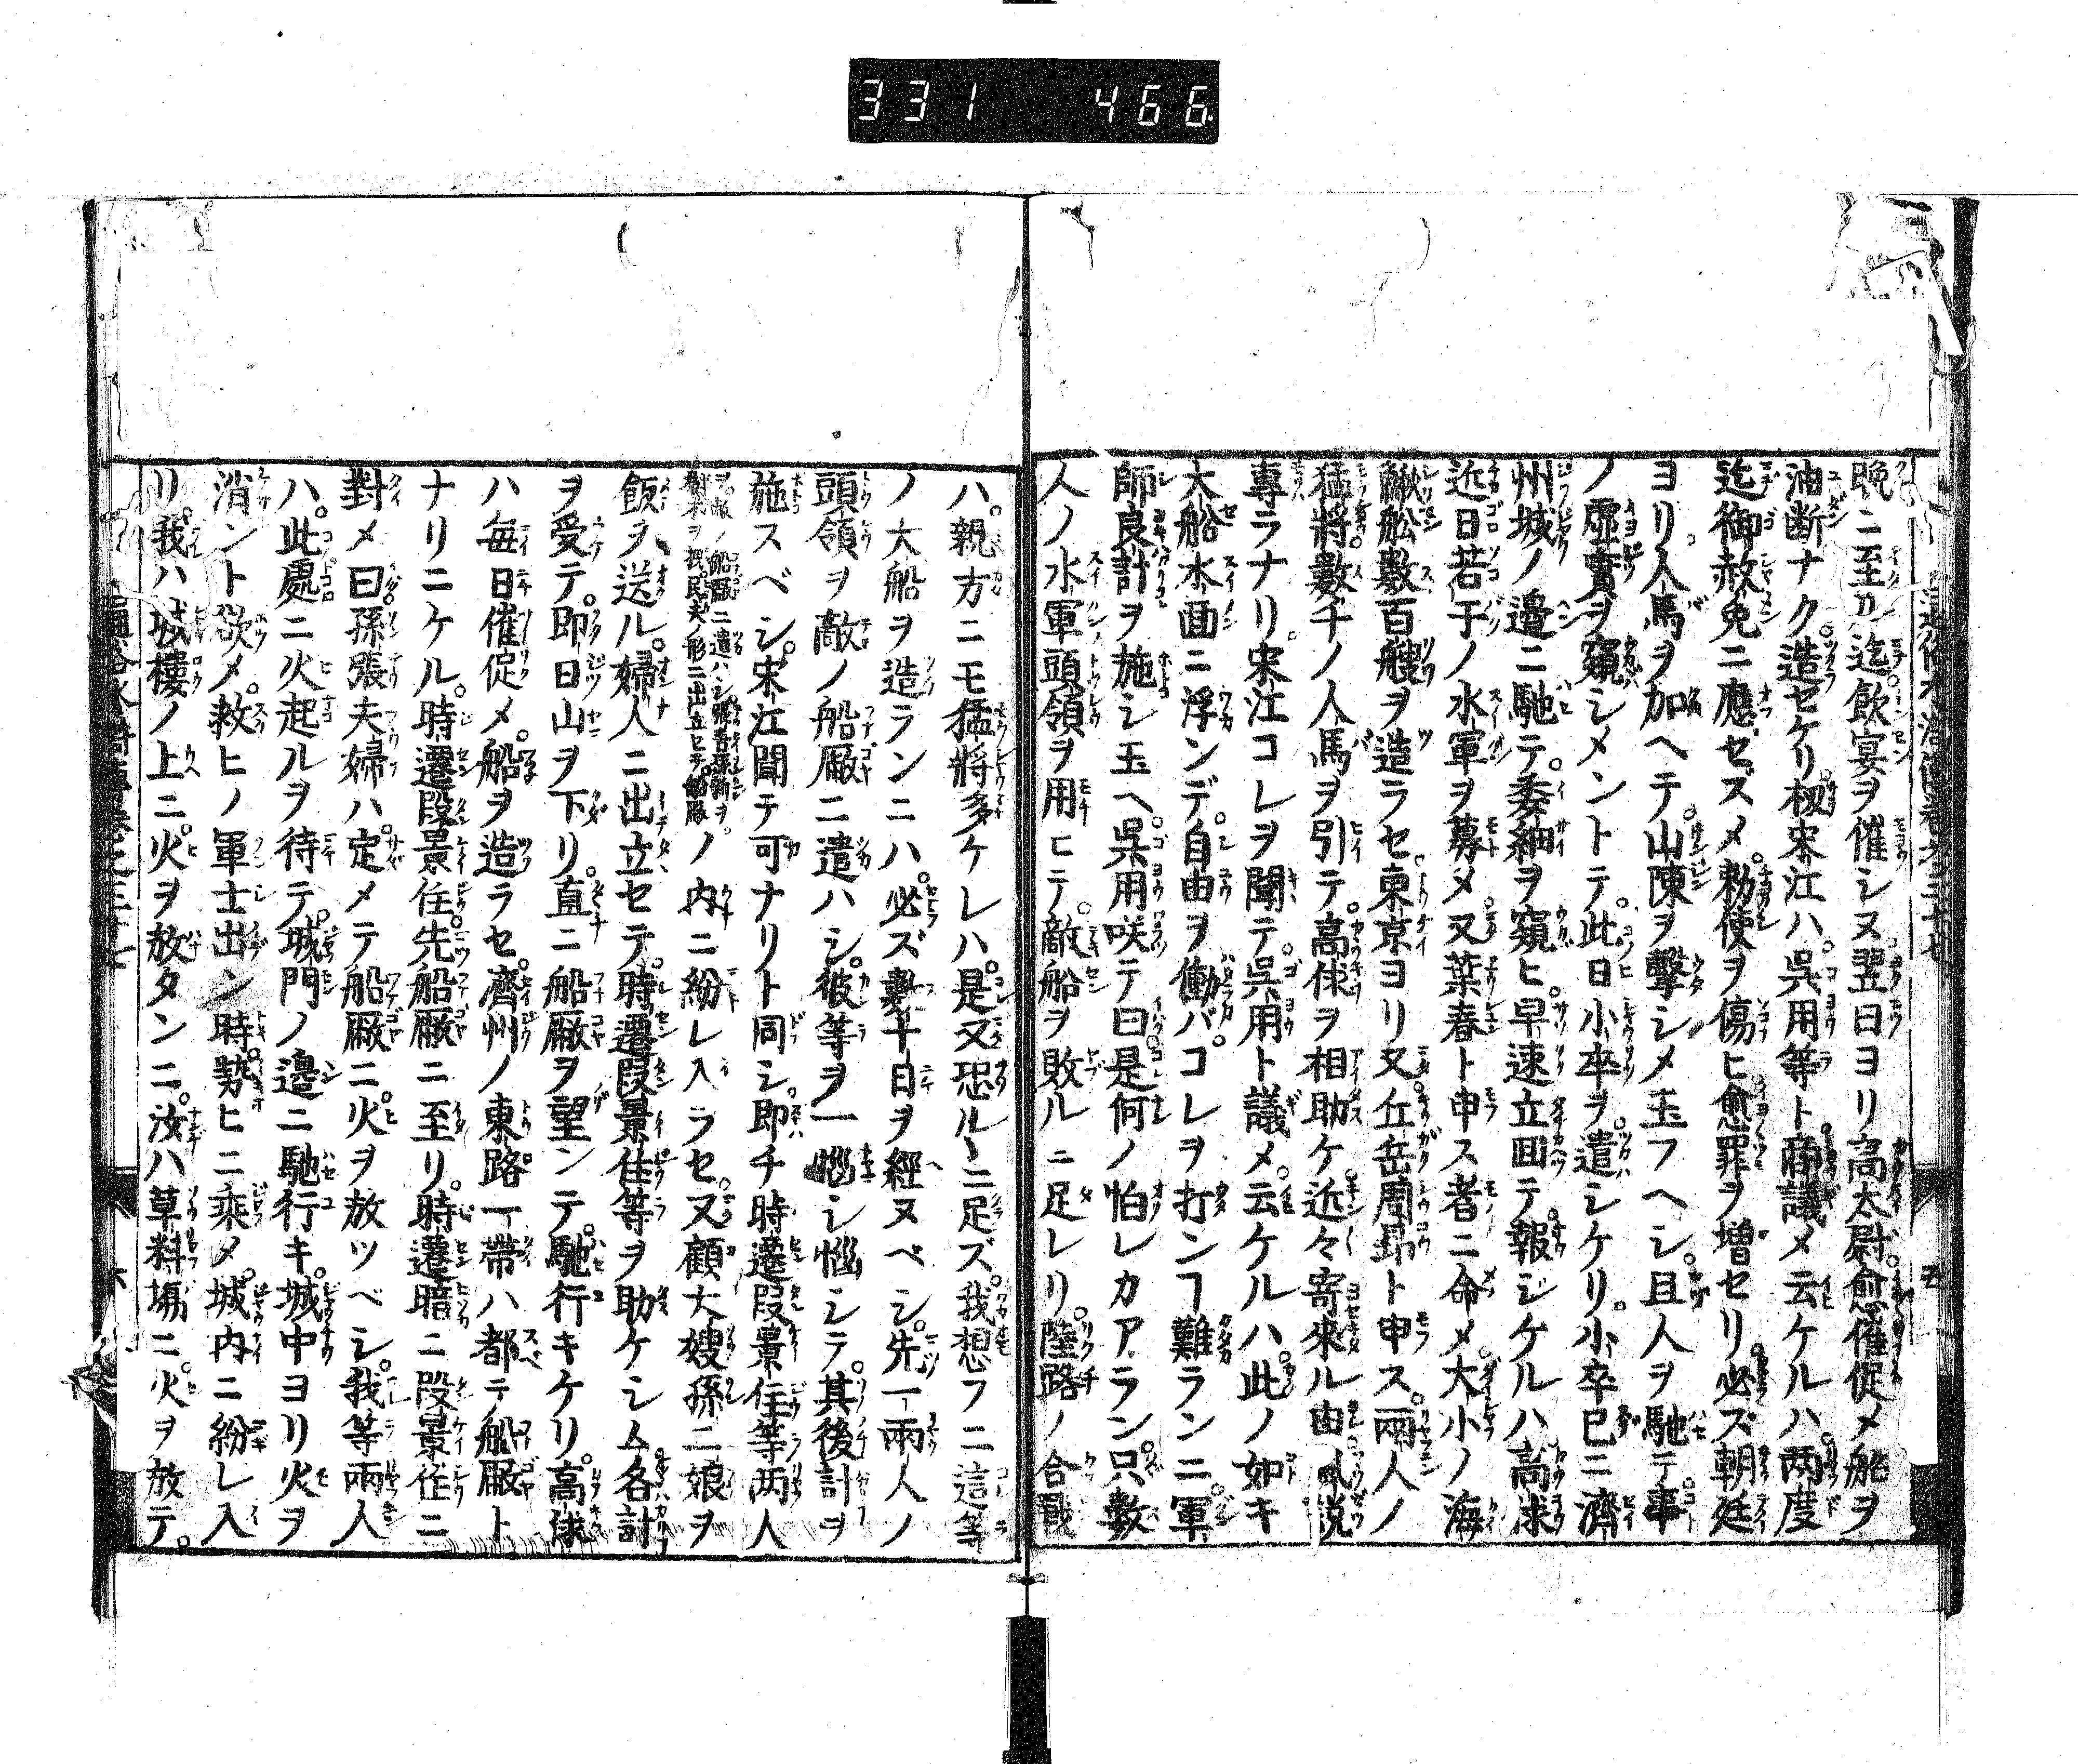 331 466
晩ニ至ル迄飲宴ヲ催シヌ翌日ヨリ高太尉愈催促メ船ヲ
油断ナク造セケリ扨宋江ハ呉用等ト商議メ云ケルハ両度
迄御赦免ニ應ゼズメ勅使ヲ傷ヒ愈罪ヲ増セリ必ズ朝廷
ヨリ人馬ヲ加ヘテ山陳ヲ擊シメ玉フヘシ且人ヲ馳テ事
ノ虚實ヲ窺シメントテ此日小卒ヲ遣シケリ小卒已ニ濟
州城ノ邉ニ馳テ委細ヲ窺ヒ早速立回テ報ジケルハ高俅
近日若干ノ水軍ヲ募メ又葉春ト申ス者ニ命メ大小ノ海
鰍舩數百艘ヲ造ラセ東京ヨリ又丘岳周昻ト申ス兩人ノ
猛將數千ノ人馬ヲ引テ高俅ヲ相助ケ近々寄來ル由風説
專ラナリ宋江コレヲ聞テ呉用ト議メ云ケルハ此ノ如キ
大船水面ニ浮ンデ自由ヲ働バコレヲ打ンヿ難ランニ軍
師良計ヲ施シ玉ヘ呉用咲テ曰是何ノ怕レカアラン只數
人ノ水軍頭領ヲ用ヒテ敵船ヲ敗ルニ足レリ陸路ノ合戰
ハ親方ニモ猛將多ケレハ是又恐ルヽニ足ズ我想フニ這等
ノ大船ヲ造ランニハ必ズ數十日ヲ經ヌベシ先一兩人ノ
頭領ヲ敵ノ船厰ニ遣ハシ彼等ヲ一惱シ惱シテ其後計ヲ
施スベシ宋江聞テ可ナリト同シ即チ時遷段景住等两人
ヲ敵ノ船厰ニ遣ハシ張青孫新ヲ
樹木ヲ拽民夫ノ形ニ出立セテ船厰
ノ内ニ紛レ入ラセ又顧大嫂孫二娘ヲ
飯ヲ送ル婦人ニ出立セテ時遷段景住等ヲ助ケシム各計
ヲ受テ即日山ヲ下リ直ニ船厰ヲ望ンテ馳行キケリ高俅
ハ毎日催促メ船ヲ造ラセ濟州ノ東路一帶ハ都テ船厰ト
ナリニケル時遷段景住先船厰ニ至リ時遷暗ニ段景住ニ
對メ曰孫張夫婦ハ定メテ船厰ニ火ヲ放ツベシ我等兩人
ハ此處ニ火起ルヲ待テ城門ノ邉ニ馳行キ城中ヨリ火ヲ
消ント欲メ救ヒノ軍士出ン時勢ヒニ乘メ城内ニ紛レ入
リ我ハ城樓ノ上ニ火ヲ放タンニ汝ハ草料塲ニ火ヲ放テ